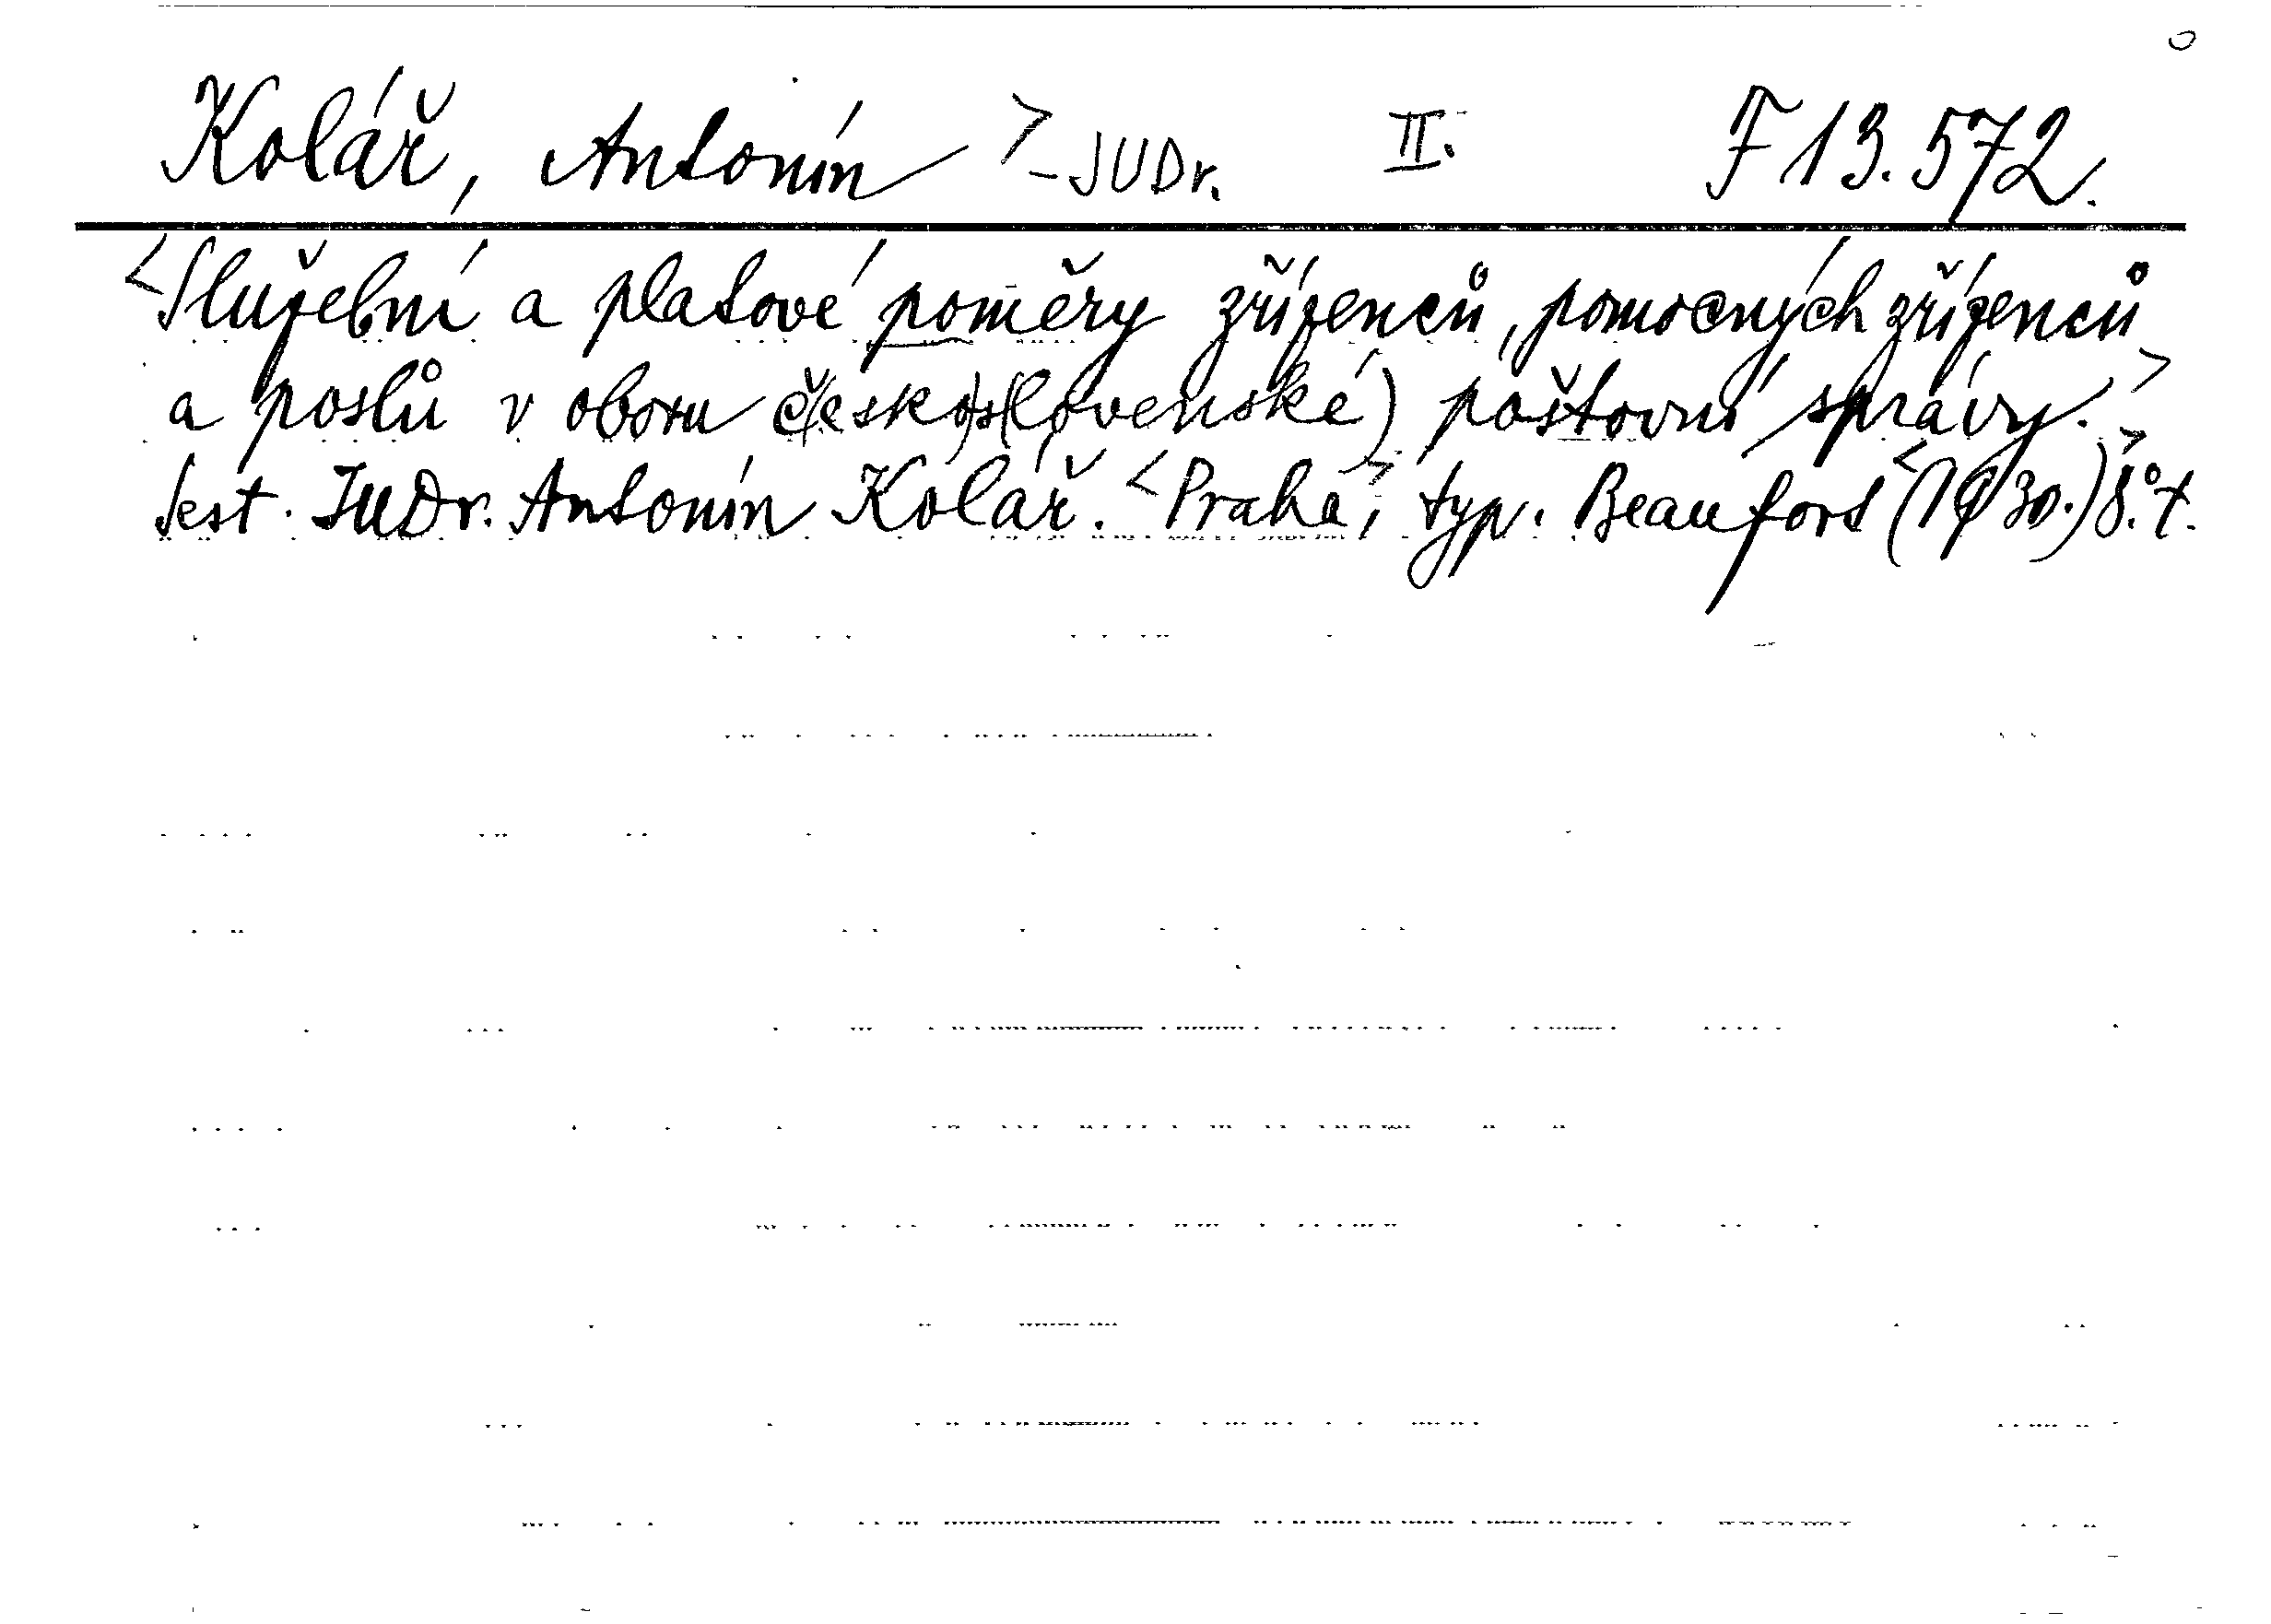 Kolář, Antonín > - JUDr. II. F 13.572.
<Služební a platové poměry zřízenců, pomocných zřízenců
a poslů v oboru č(esko)s(lovenské) poštovní správy.>
Sest. JUDr. Antonín Kolář. <Praha,> typ. Beaufort <(1930.)> 8.° 7.